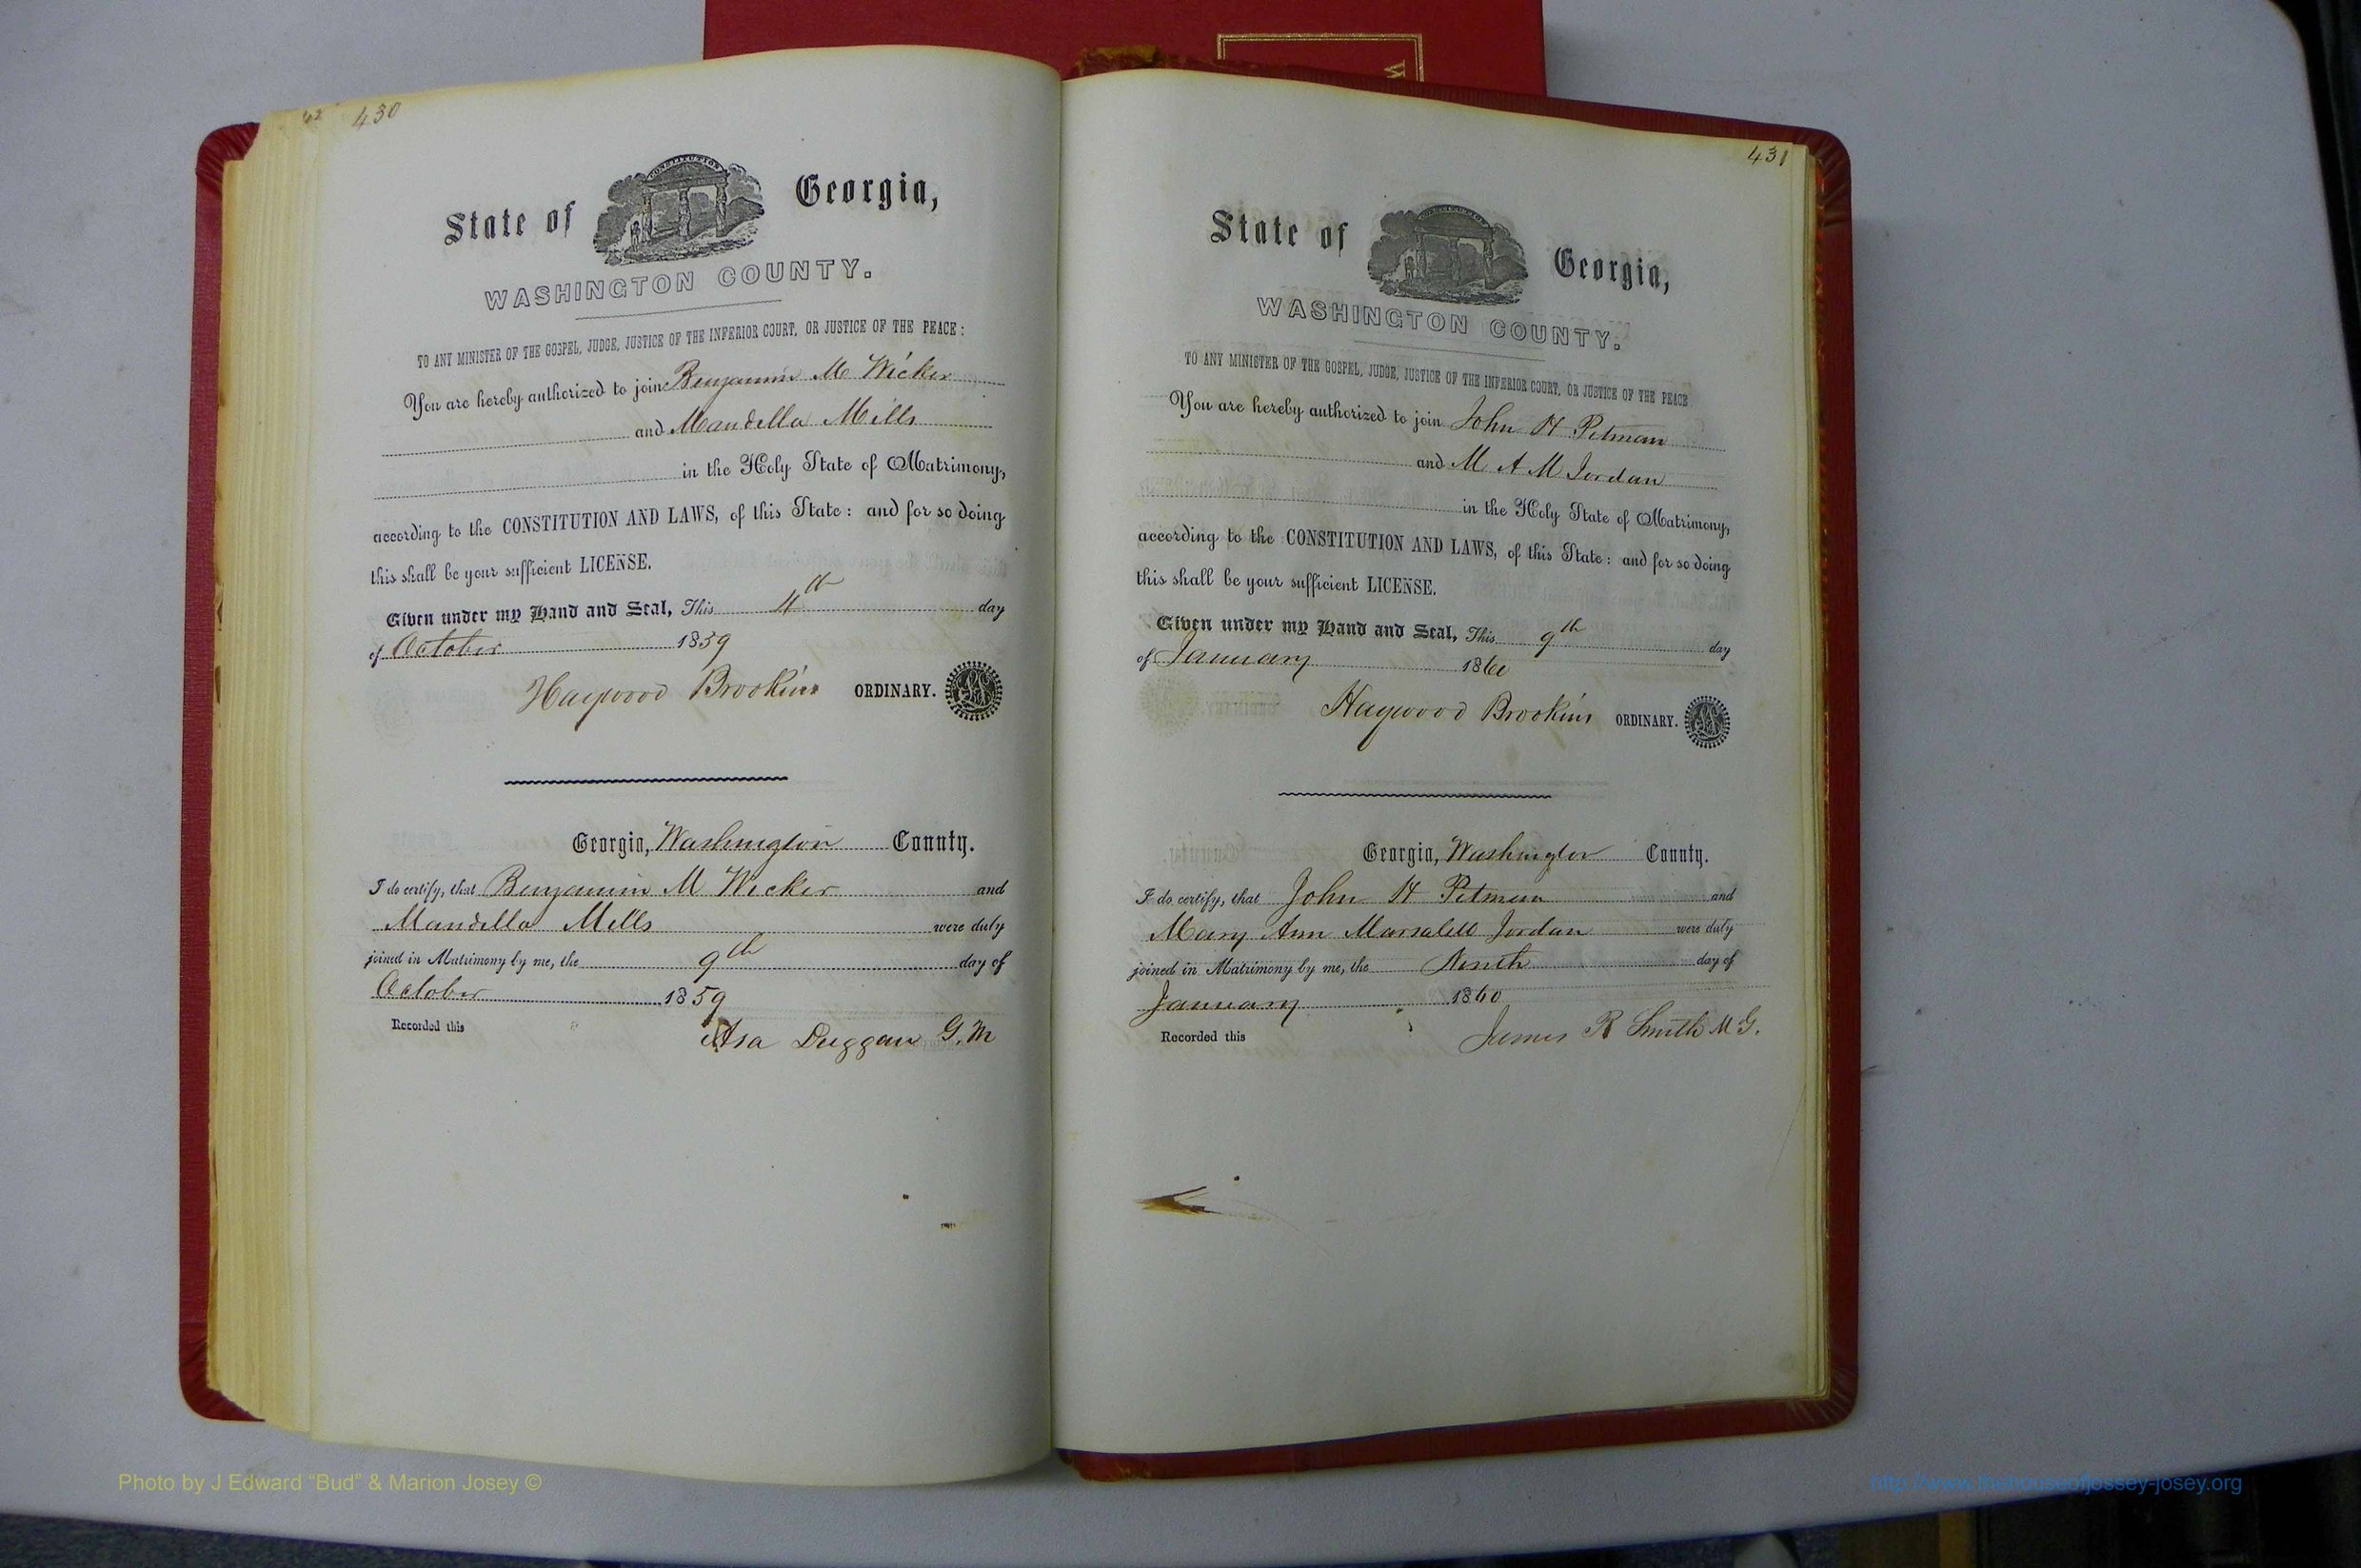 430
CONSTITUTION
State of Georgia,
WASHINGTON COUNTY.
TO ANY MINISTER OF THE GOSPEL, JUDGE, JUSTICE OF THE INFERIOR COURT, OR JUSTICE OF THE PEACE:
You are hereby authorized to join Benjamin M Wicker
and Mandella Mills
in the Holy State of Matrimony,
according to the CONSTITUTION AND LAWS, of this State: and for so doing
this shall be your sufficient LICENSE.
Given under my Hand and Seal, This 4th day
of October 1859
Haywood Brookins ORDINARY.
Georgia, Washington County.
I do certify, that Benjamin M Wicker and
Mandella Mills were duly
joined in Matrimony by me, the 9th day of
October 1859
Recorded this
Asa Duggan G.M
431
CONSTITUTION
State of Georgia,
WASHINGTON COUNTY.
TO ANY MINISTER OF THE GOSPEL, JUDGE, JUSTICE OF THE INFERIOR COURT, OR JUSTICE OF THE PEACE
You are hereby authorized to join John H Pitman
and M A M Jordan
in the Holy State of Matrimony,
according to the CONSTITUTION AND LAWS, of this State: and for so doing
this shall be your sufficient LICENSE.
Given under my Hand and Seal, This 9th day
of January 1860
Haywood Brookins ORDINARY.
Georgia, Washington County.
I do certify, that John H Pitman and
Mary Ann Jordan were duly
joined in Matrimony by me, the Ninth day of
January 1860
Recorded this
James R Smith M G.
Photo by J Edward “Bud” & Marion Josey ©
http://www.thehouseofjossey-josey.org